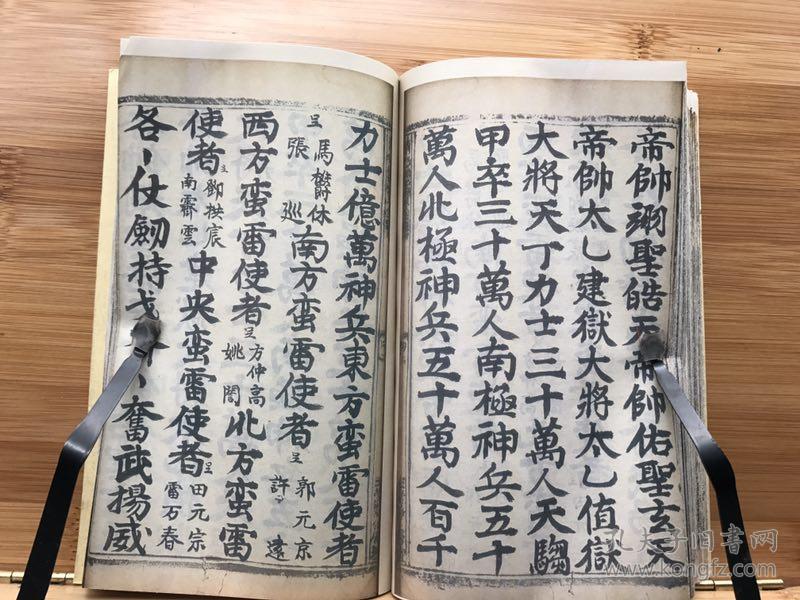 帝帥翊聖皓天帝帥佑聖玄
帝帥太乙建獄大將太乙值獄
大將天丁力士三十萬人天騶
甲卒三十萬人南極神兵五十
萬人北極神兵五十萬人百千
力士億萬神兵東方蛮雷使者
呈馬欝休張巡南方蛮雷使者呈郭元京許遠
西方蛮雷使者呈方仲高姚誾北方蛮雷
使者鄧拱宸南霽雲中央蛮雷使者呈田元宗雷石春
各丶仗劍持戈丶奮武揚威
孔夫子旧书网
www.kongfz.com